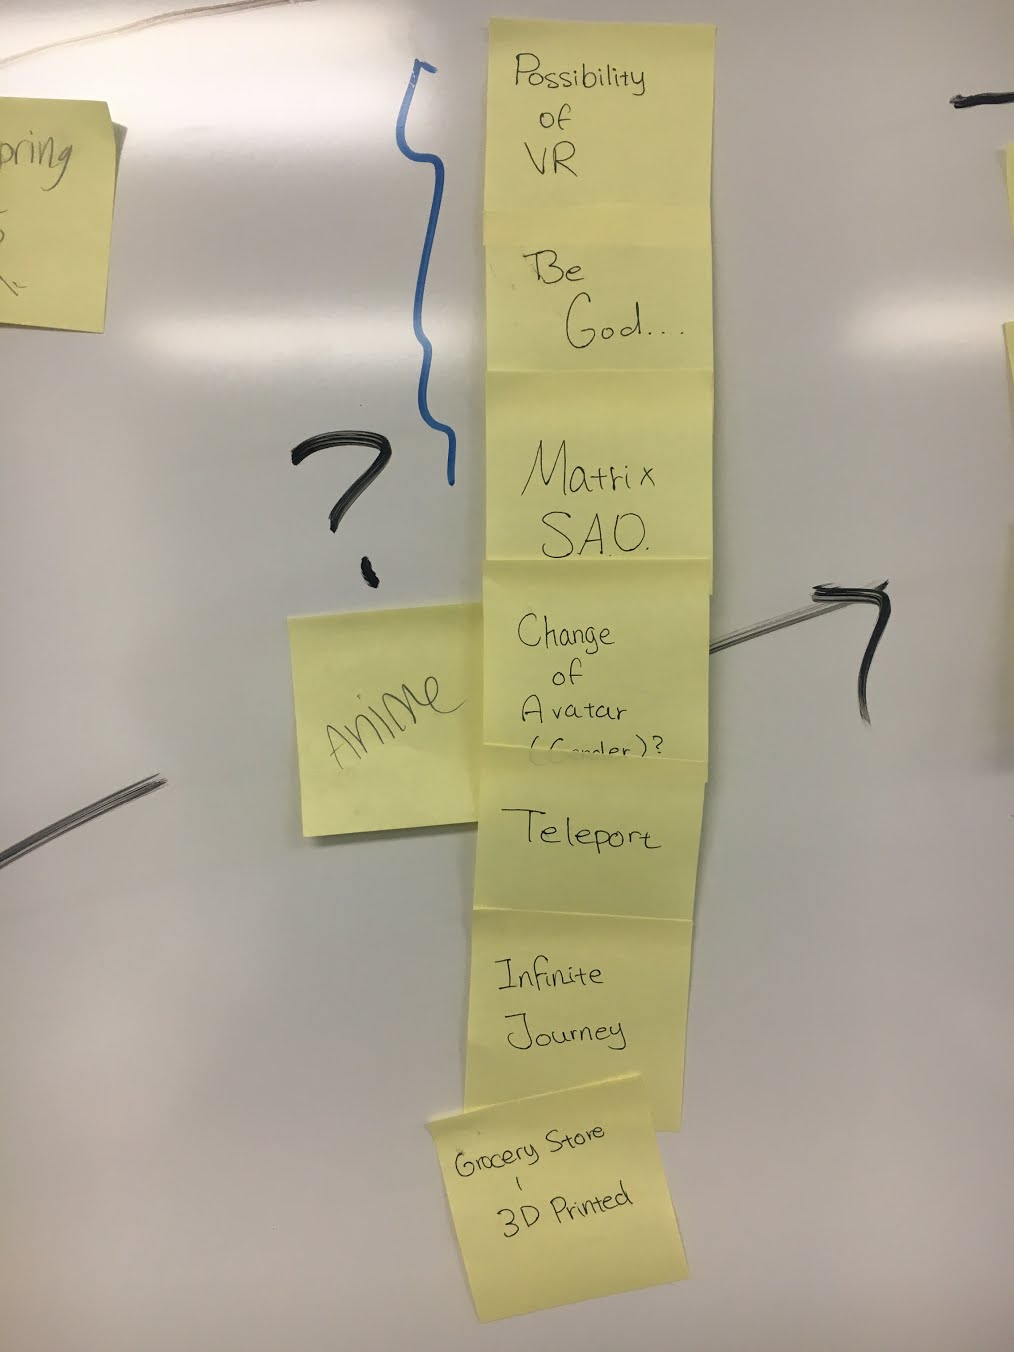 pring
?
Possibility
of
VR
Be
God...
Matrix
S.A.O.
Change
of
Avatar
(Gender)?
Anime
Teleport
Infinite
Journey
Grocery Store
3D Printed